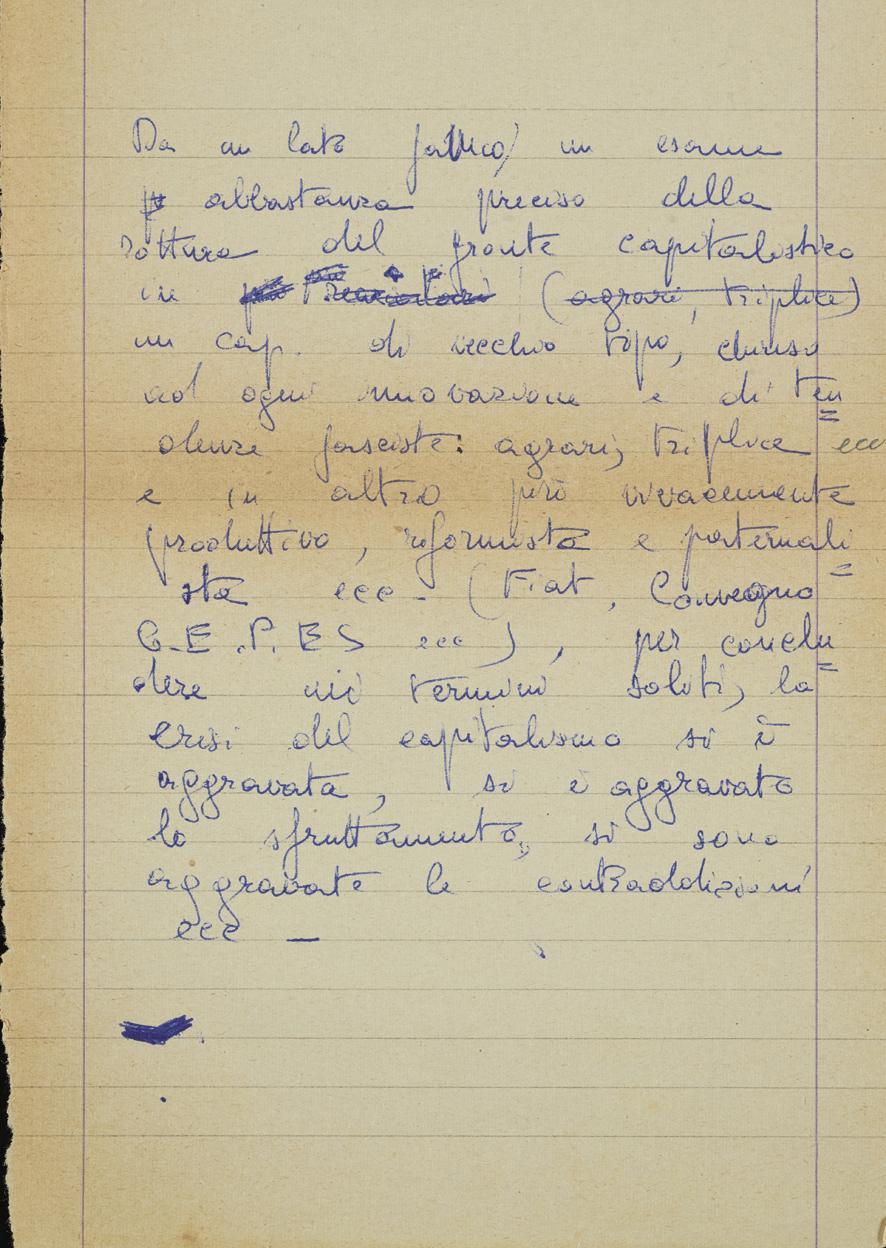 Da un lato fa un esame
abbastanza preciso della
rottura del fronte capitalistico
in (agrari, triplice)
un cap. di vecchio tipo, chiuso
ad ogni innovazione e di ten
denze fasciste: agrari, triplice ecc
e in altro più vivacemente
produttivo, riformista e paternali
sta ecc - (Fiat, Convegno
C.E.P.ES ecc), per conclu
dere nei termini soliti, la
crisi del capitalismo si è
aggravata, si è aggravato
lo sfruttamento, si sono
aggravate le contraddizioni
ecc -